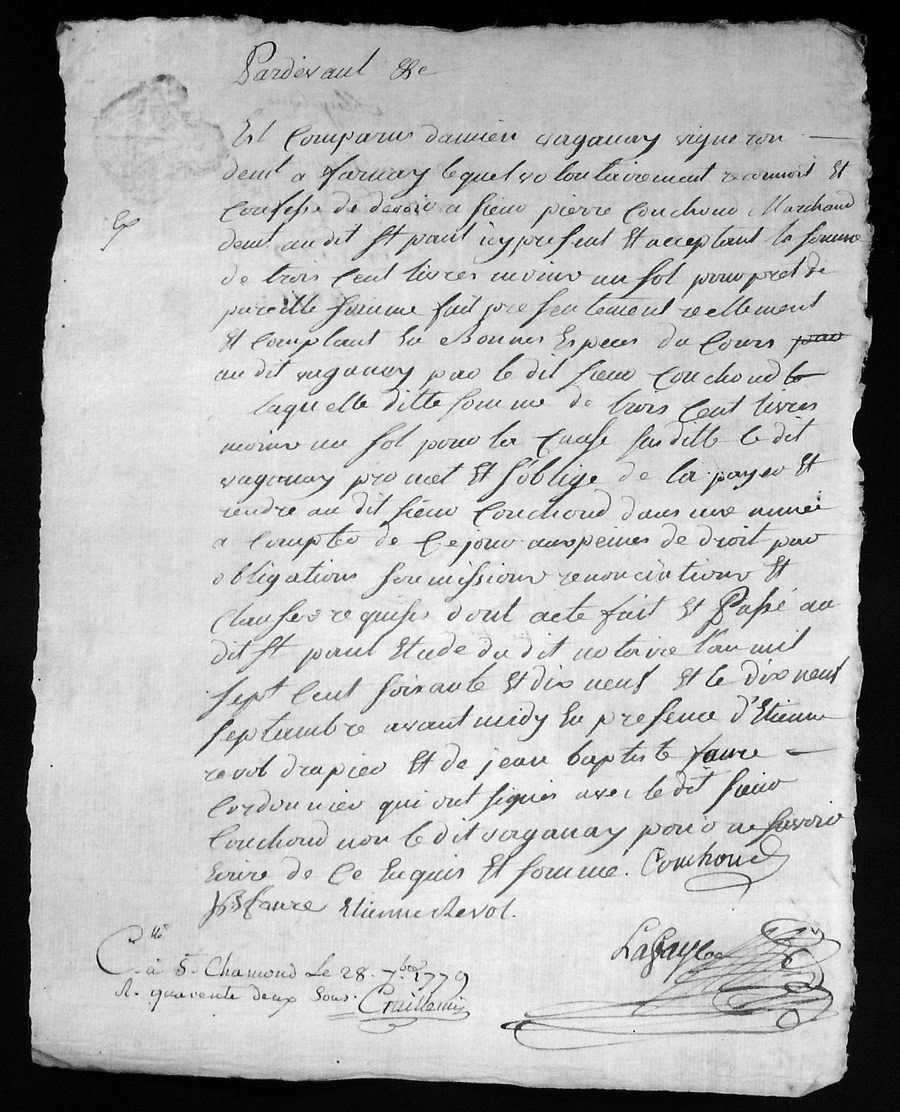 Pardevant &c
Est Comparus damien vaganay vigneron
demt a farnay lequel volontairement reconnoit Et
Confesse de devoir a sieur pierre Couchoud Marchand
demt audit St paul icy present Et acceptant la somme
de trois Cent livres moins un sol pour pret de
pareille somme fait presentement reellement
Et Comptant En Bonnes Especes du Cours par
audit vaganay par le dit sieur Couchoud le
laquelle ditte somme de trois Cent livres
moins un sol pour la Cause susditte le dit
vaganay promet Et s'oblige de la payer Et
rendre au dit sieur Couchoud dans une année
a Compter de Ce jour aux peines de droit par
obligations soumissions renonciations Et
Clauses requises dont acte fait Et Passé au
dit St paul Etude du dit notaire l'an mil
sept Cent soixante Et dix neuf Et le dix neuf
septambre avant midy En presence d'Etienne
revol drapier Et de jean baptiste faure
Cordonnier qui ont signés avec le dit sieur
Couchoud non le dit vaganay pour ne savoir
Ecrire de Ce Enquis Et sommé. Couchoud
JBfaure Etienne Revol.
Lafaye
C.lé à S. Chamond Le 28. 7bre 1779
R. quarente deux sous.